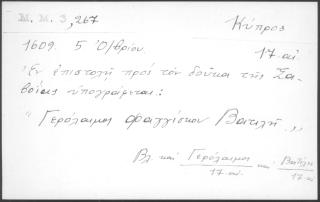 Μ. Μ. 3, 267
Κύπρος
1609. 5 Ὀ/βρίου. 17 αἰ.
Ἐν ἐπιστολῇ πρός τόν δοῦκα τῆς Σα-
βοΐας ὑπογράφεται:
"Γερόλαιμος φραγγίσκου Βατιλῆ..."
Βλ. καί Γερόλαιμος 17 αἰ. καί Βατίλη 17 αἰ.